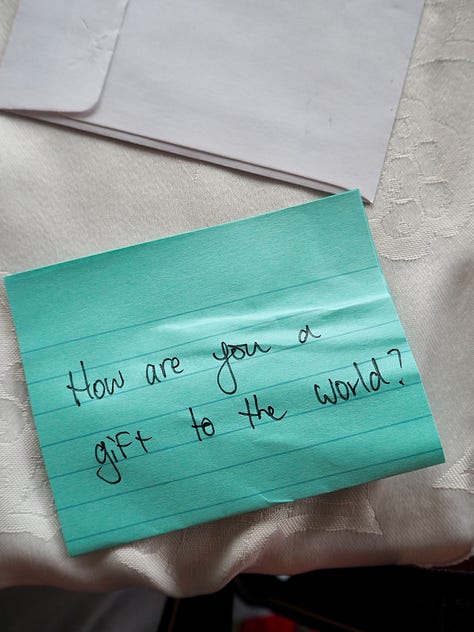 How are you a
gift to the world?